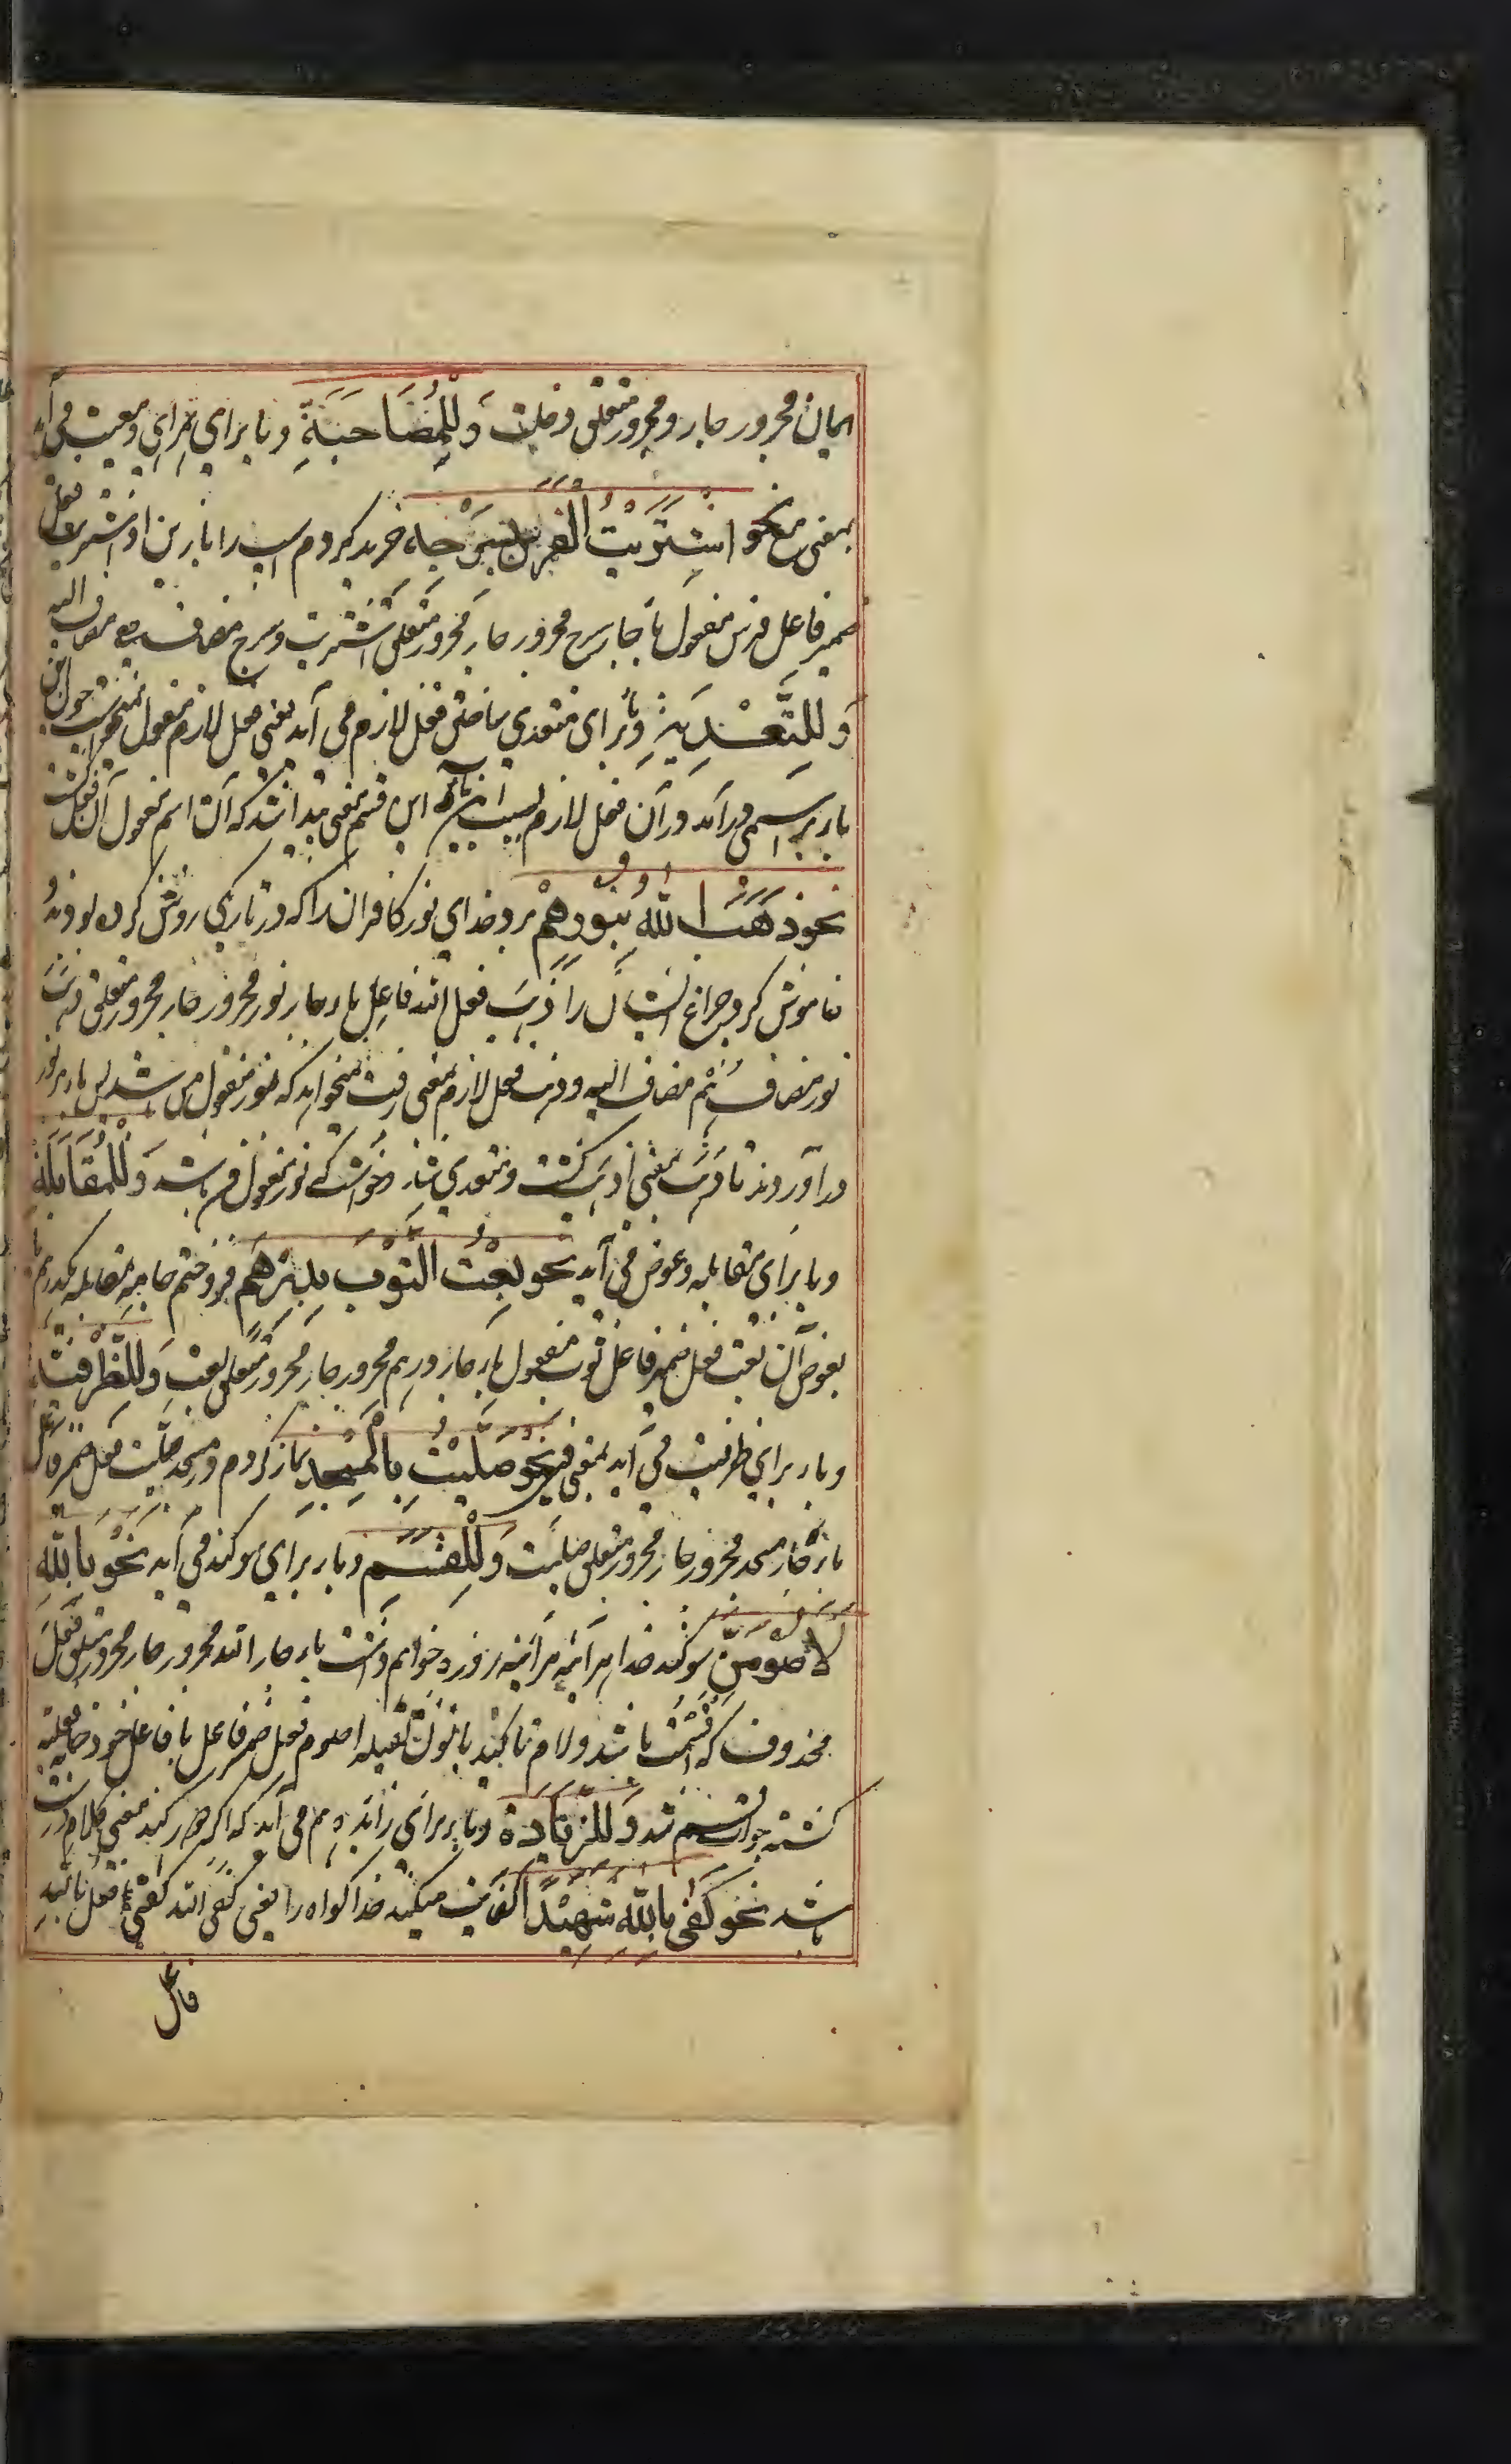 ایمان مجرور جار و مجرور متعلق دخلت وَلِلْمُصَاحَبَةِ و با برای همراهی و معیت می آید
بمعنی مع نحو اشْتَرَيْتُ الْفَرَسَ بِسَرْجِهِ خرید کردم اسپ را با زین او اشتریت فعل
ضمیر فاعل فرس مفعول با جار سرج مجرور جار مجرور متعلق اشتریت و سرج مضاف ه مضاف الیه
وَلِلتَّعْدِيَةِ و با برای متعدی ساختن فعل لازم می آید یعنی فعل لازم مفعول نمیخواست چون این
باء بر اسمی درآید در آن فعل لازم بسبب این باء این قسم معنی پیدا شد که آن اسم مفعول آن فعل
نحو ذَهَبَ اللّٰهُ بِنُورِهِمْ برد خدای نور کافران را که در تاریکی روشن کرده بودند و
خاموش کرد چراغ ایشان را ذهب فعل الله فاعل باء جار نور مجرور جار مجرور متعلق ذهب
نور مضاف هم مضاف الیه و ذهب فعل لازم بمعنی رفت نمیخواهد که نور مفعول من شد پس باء بر نور
درآوردند تا ذهب بمعنی اذهب گشت و متعدی شد و خواست که نور مفعول من باشد وَلِلْمُقَابَلَةِ
و با برای مقابله و عوض می آید نحو بِعْتُ الثَّوْبَ بِدِرْهَمٍ فروختم جامه بمقابله یکدرهم یا
بعوض آن بعت فعل ضمیر فاعل ثوب مفعول باء جار درهم مجرور جار مجرور متعلق بعت وَلِلظَّرْفِيَّةِ
و باء برای ظرفیت می آید بمعنی فی نحو صَلَّيْتُ بِالْمَسْجِدِ نماز کردم در مسجد صلیت فعل ضمیر فاعل
باء جار مسجد مجرور جار مجرور متعلق صلیت وَلِلْقَسَمِ و باء برای سوگند می آید نَحْوُ بِاللّٰهِ
لَاَصُوْمَنَّ سوگند خدا هرآئینه هرآئینه روزه خواهم داشت باء جار الله مجرور جار مجرور متعلق فعل
محذوف که اقسمت باشد و لام تاکید با نون ثقیله اصوم فعل ضمیر فاعل با فاعل خود جمله فعلیه
گشته جواب قسم شد وَلِلزِّيَادَةِ و باء برای زائد هم می آید که اگر دور کنند معنی کلام درست
باشد نحو كَفٰى بِاللّٰهِ شَهِيْدًا کفایت میکند خدا گواه را یعنی کفی الله کفی فعل باء زائد
فاعل